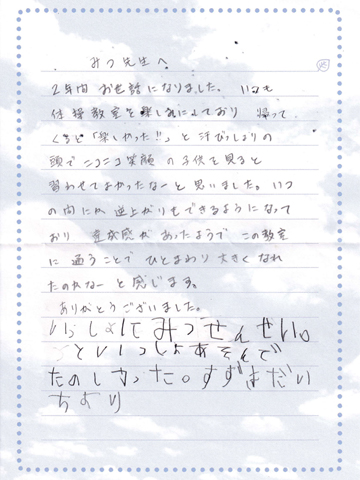 みつ先生へ
2年間 お世話になりました。 いつも
体操教室を楽しみにしており 帰って
くると「楽しかった!!」と 汗びっしょりの
頭でニコニコ笑顔 の子供を見ると
習わせてよかったなーと思いました。いつ
の間にか逆上がりもできるようになって
おり 達成感が あったようで この教室
に 通うことで ひとまわり 大きく なれ
たのかなーと感じます。
ありがとうございました。
みつせんせい。
いっしょあそんで
たのしかった。
より